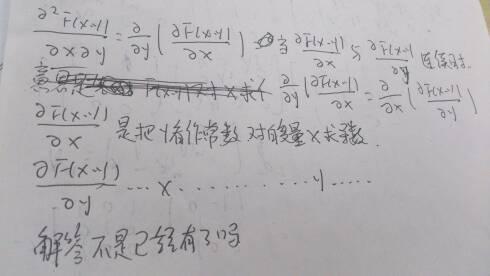 ∂²F(x·y)/∂x∂y = ∂/∂y (∂F(x·y)/∂x) 当 ∂F(x·y)/∂x 与 ∂F(x·y)/∂y 连续时.
意思是 ∂/∂y (∂F(x·y)/∂x) = ∂/∂x (∂F(x·y)/∂y)
∂F(x·y)/∂x 是把y看作常数 对变量x求导数.
∂F(x·y)/∂y ... x ......... y .....
解答不是已经有了吗